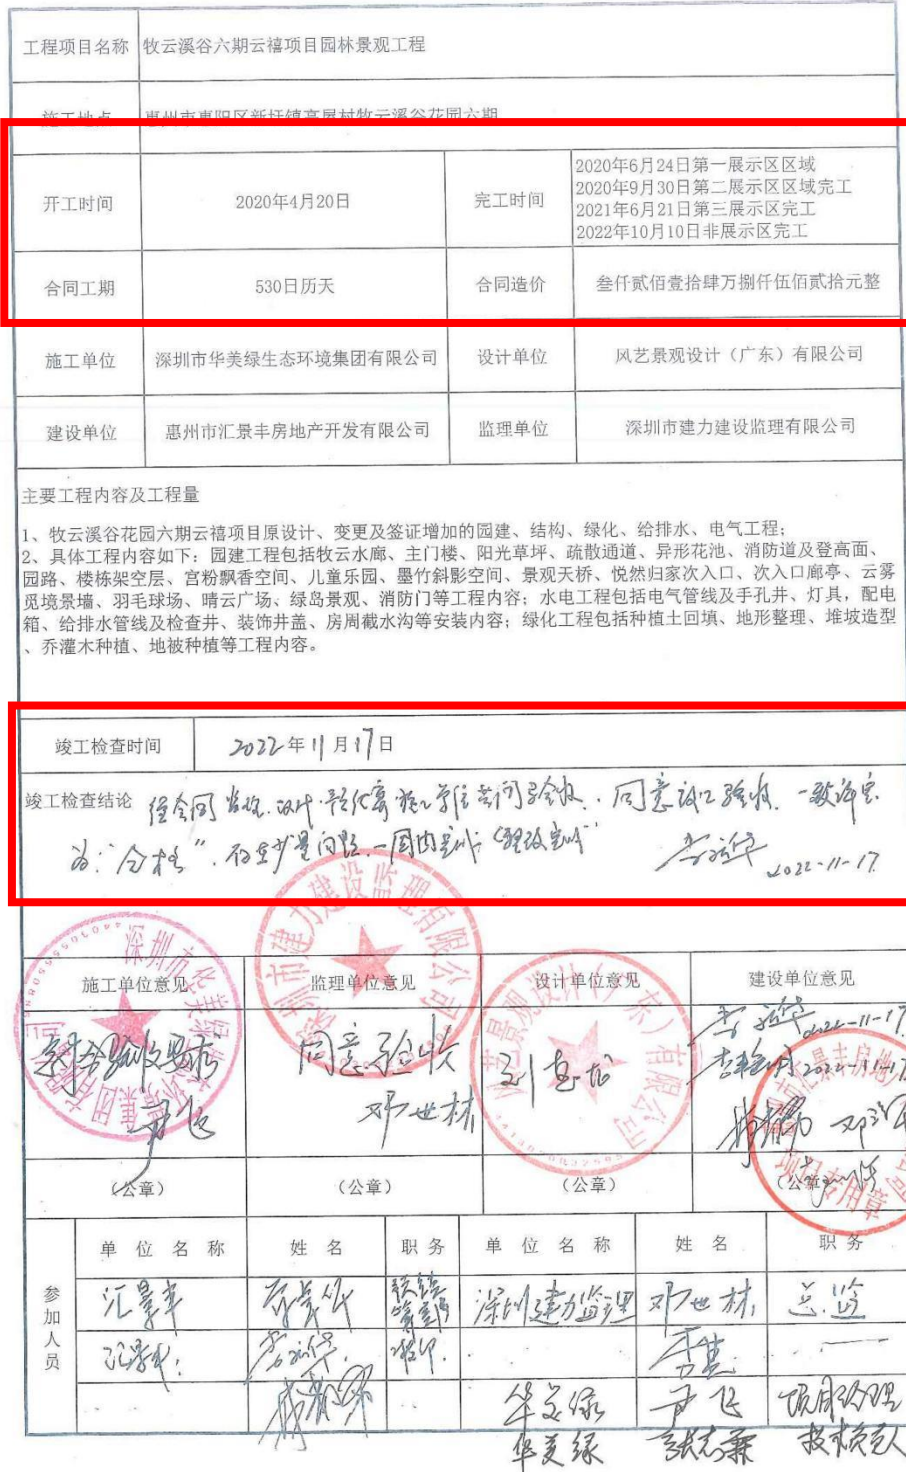 工程项目名称 牧云溪谷六期云禧项目园林景观工程
施工地点 惠州市惠阳区新圩镇高屋村牧云溪谷花园六期
开工时间 2020年4月20日 完工时间 2020年6月24日第一展示区区域
2020年9月30日第二展示区区域完工
2021年6月21日第三展示区完工
2022年10月10日非展示区完工
合同工期 530日历天 合同造价 叁仟贰佰壹拾肆万捌仟伍佰贰拾元整
施工单位 深圳市华美绿生态环境集团有限公司 设计单位 风艺景观设计（广东）有限公司
建设单位 惠州市汇景丰房地产开发有限公司 监理单位 深圳市建力建设监理有限公司
主要工程内容及工程量
1、牧云溪谷花园六期云禧项目原设计、变更及签证增加的园建、结构、绿化、给排水、电气工程；
2、具体工程内容如下：园建工程包括牧云水廊、主门楼、阳光草坪、疏散通道、异形花池、消防道及登高面、
园路、楼栋架空层、宫粉飘香空间、儿童乐园、墨竹斜影空间、景观天桥、悦然归家次入口、次入口廊亭、云雾
觅境景墙、羽毛球场、晴云广场、绿岛景观、消防门等工程内容；水电工程包括电气管线及手孔井、灯具，配电
箱、给排水管线及检查井、装饰井盖、房周截水沟等安装内容；绿化工程包括种植土回填、地形整理、堆坡造型
、乔灌木种植、地被种植等工程内容。
竣工检查时间 2022年11月17日
竣工检查结论 同意竣工验收. 一致评定
为:"合格". 存在少量问题.一周内完成
2022-11-17
施工单位意见 监理单位意见 设计单位意见 建设单位意见
2022-11-17
同意验收 2022-11-17
尹飞 邓世林
（公章） （公章） （公章） （公章）
深圳市华美绿生态环境集团有限公司
深圳市建力建设监理有限公司
项目专用章
参加人员
单位名称 姓名 职务 单位名称 姓名 职务
汇景丰 深圳建力监理 邓世林 总监
汇景丰
华美绿 尹飞 项目经理
华美绿 张志霖 技术负责人